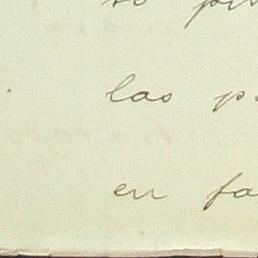 las p
en fa